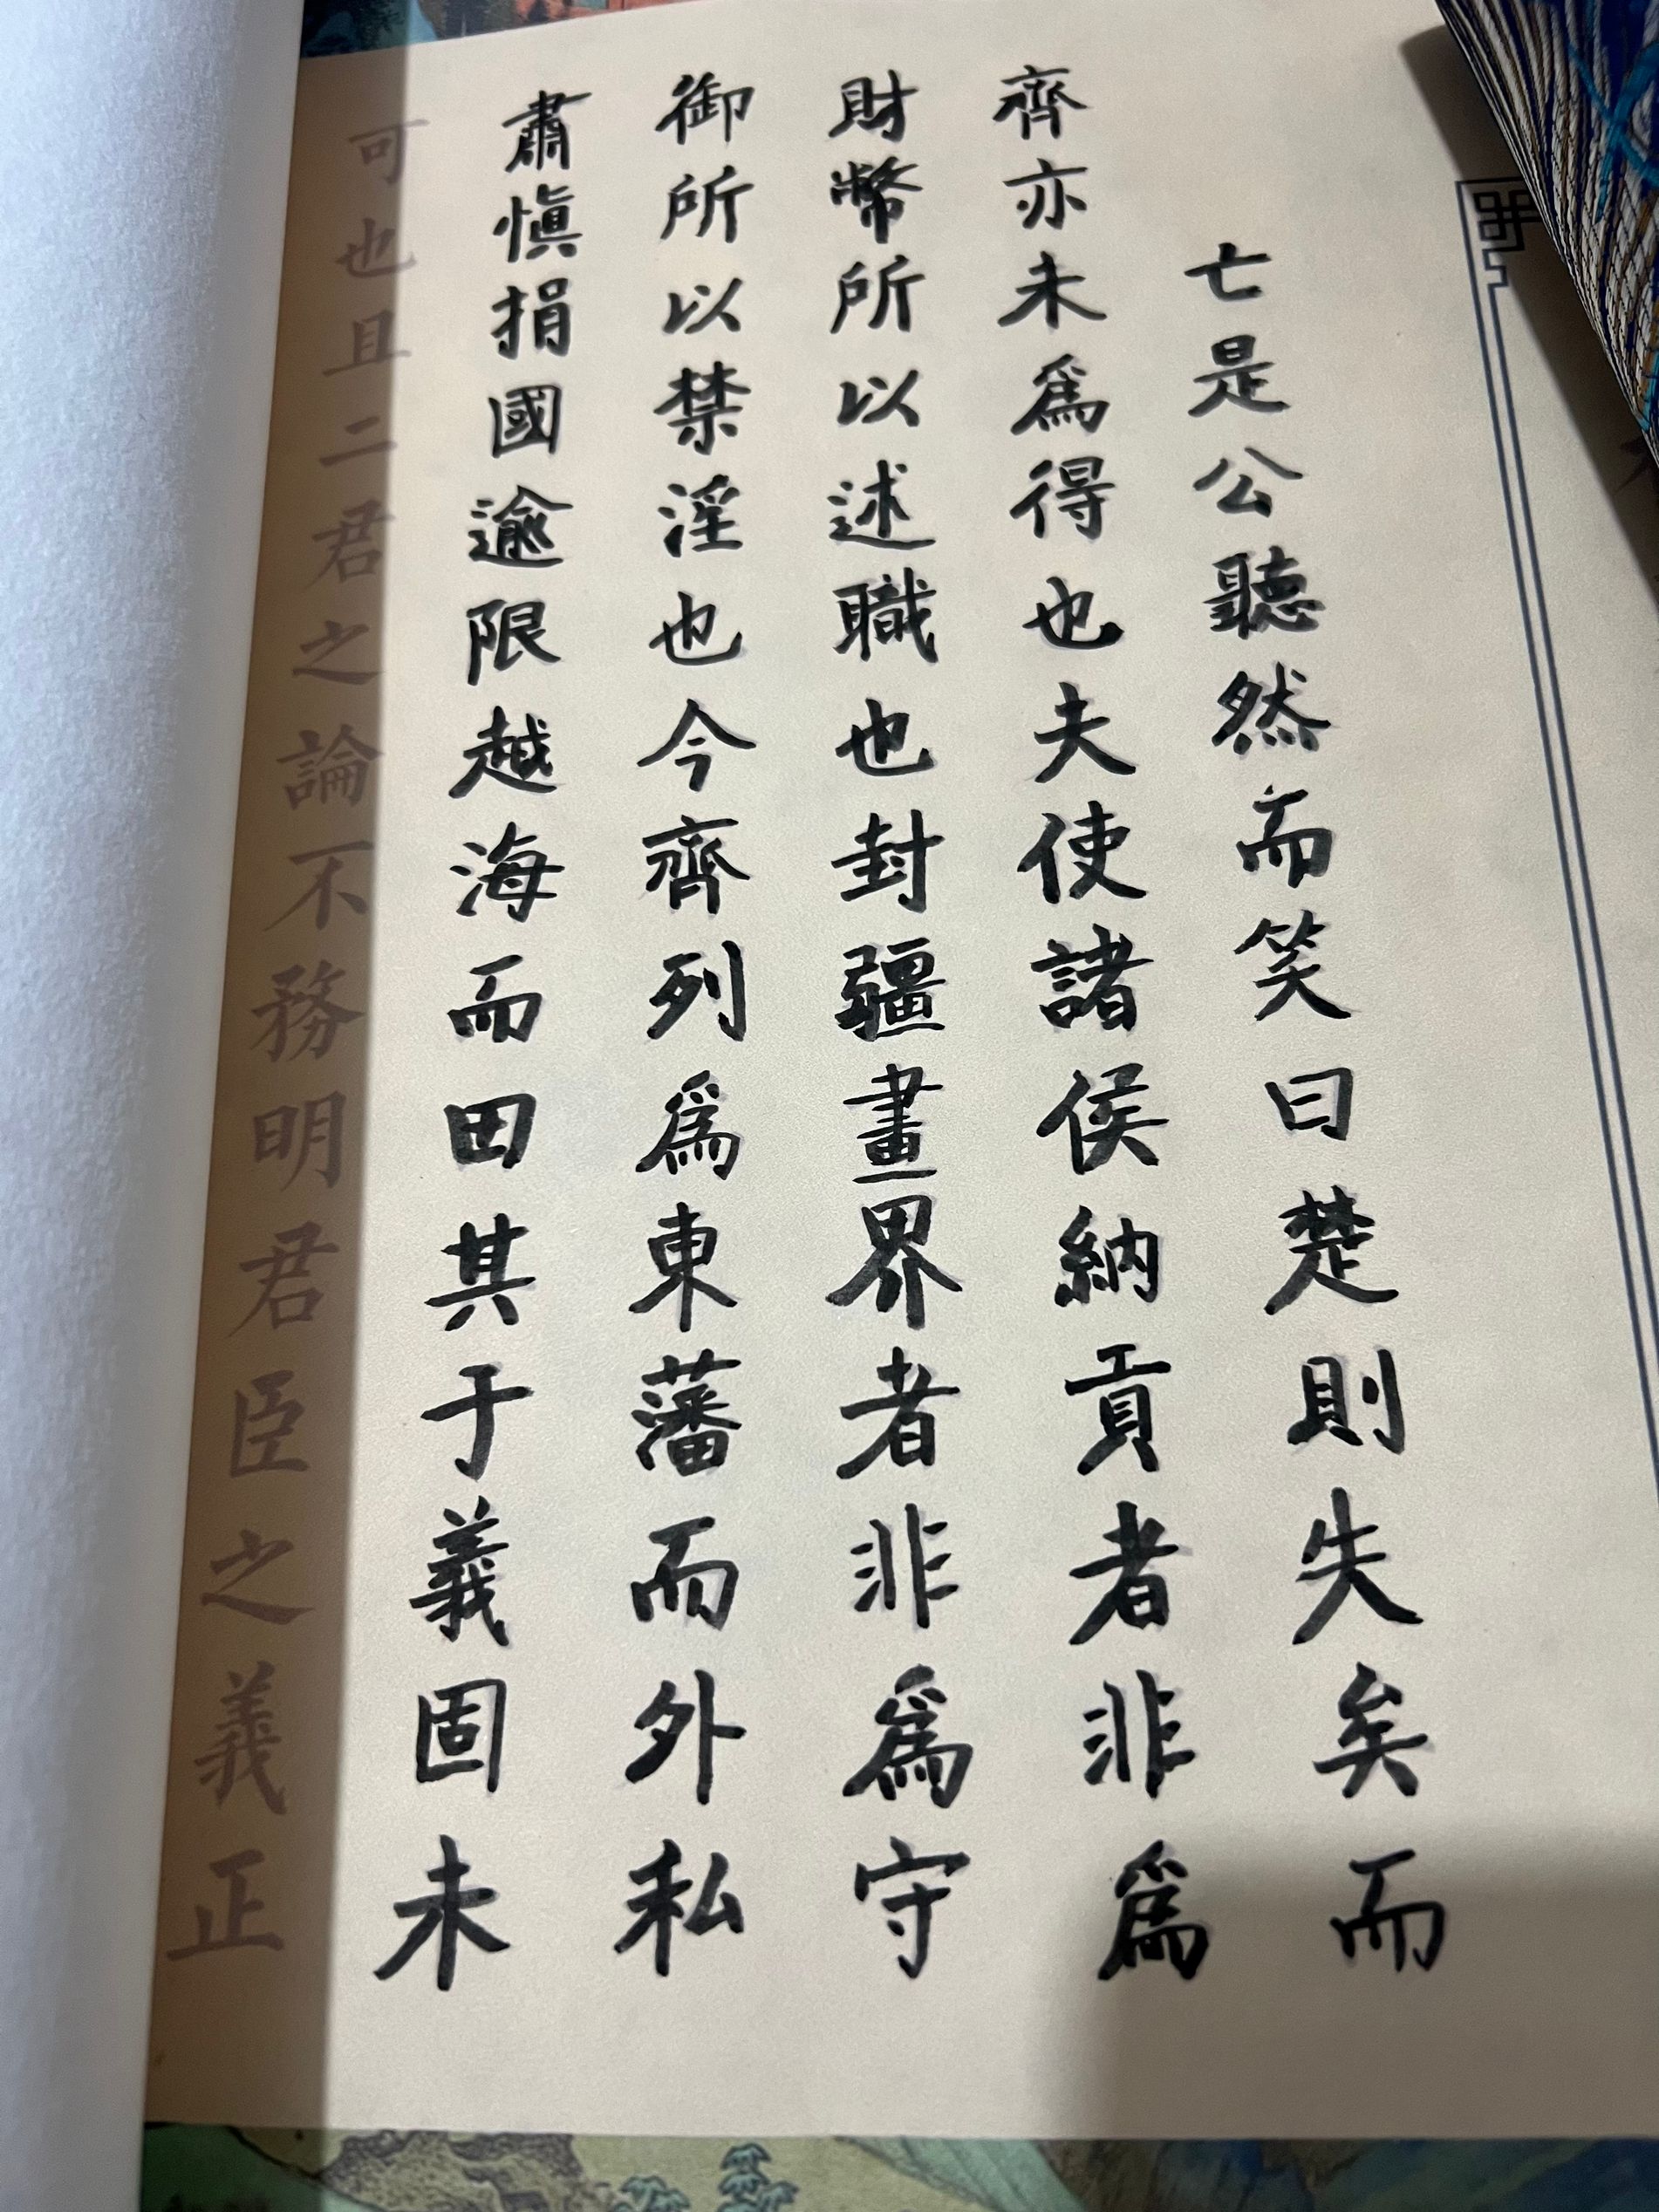 亡是公聽然而笑曰楚則失矣而
齊亦未爲得也夫使諸侯納貢者非爲
財幣所以述職也封疆畫界者非爲守
御所以禁淫也今齊列爲東藩而外私
肅慎捐國逾限越海而田其于義固未
可也且二君之論不務明君臣之義正